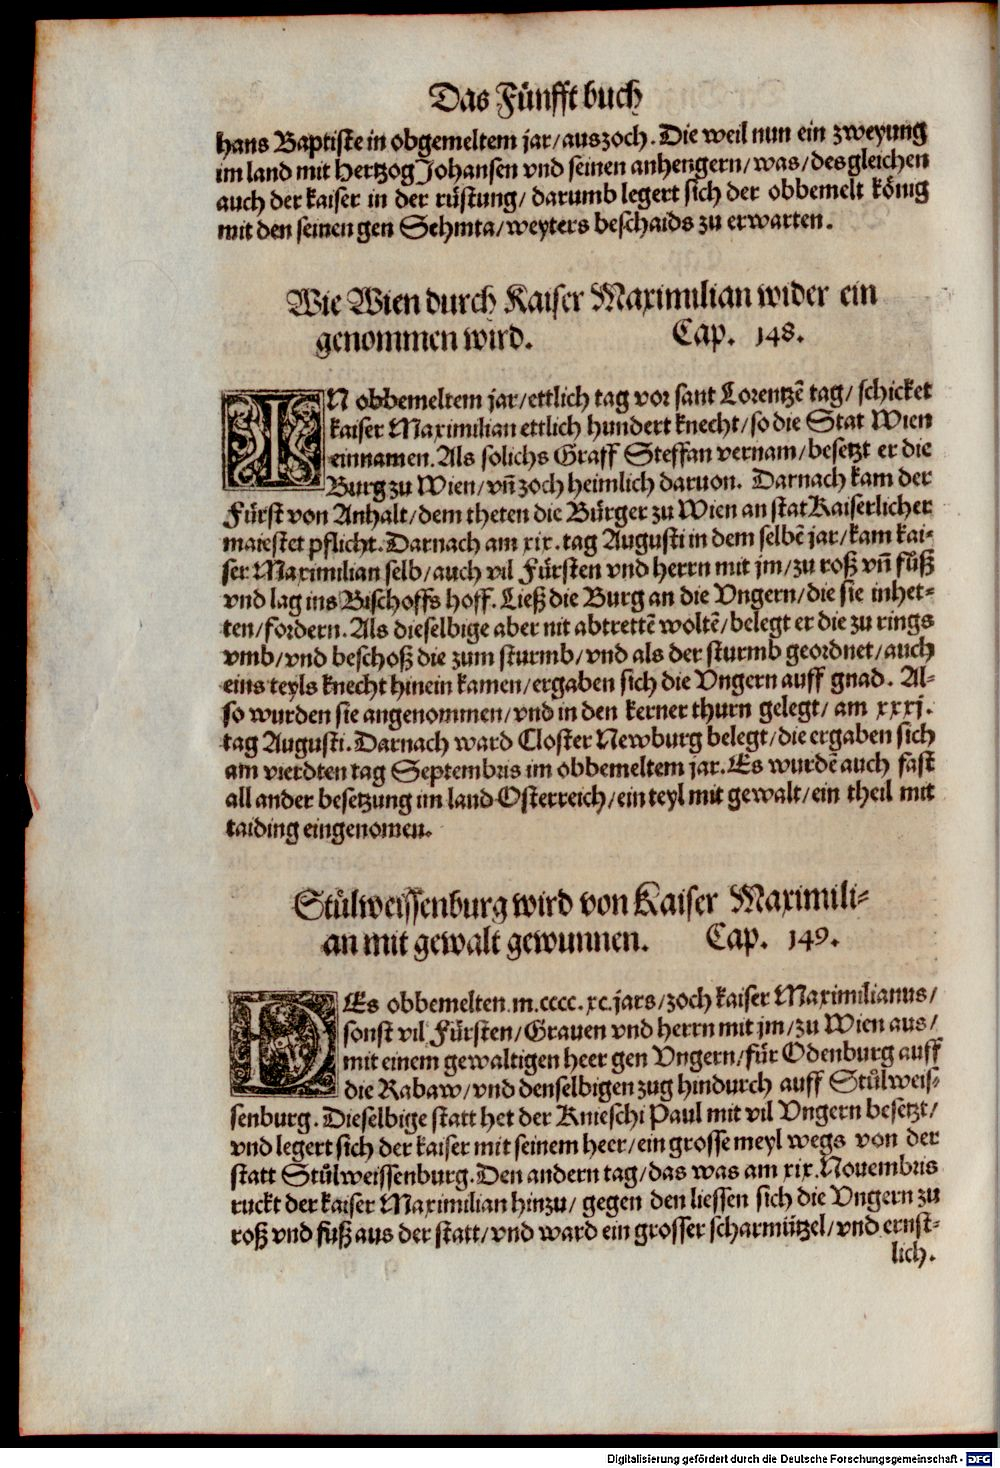 Das Fünfft buch
hans Baptiste in obgemeltem jar/auszoch. Die weil nun ein zweyung
im land mit Hertzog Johansen vnd seinen anhengern/was/desgleichen
auch der kaiser in der rüstung/darumb legert sich der obbemelt könig
mit den seinen gen Schinta/weyters beschaids zu erwarten.
Wie Wien durch Kaiser Maximilian wider ein
genommen wird. Cap. 148.
IN obbemeltem jar/ettlich tag vor sant Lorentzē tag/schicket
kaiser Maximilian ettlich hundert knecht/so die Stat Wien
einnamen. Als solichs Graff Steffan vernam/besetzt er die
Burg zu Wien/vñ zoch heimlich daruon. Darnach kam der
Fürst von Anhalt/dem theten die Bürger zu Wien an stat Kaiserlicher
maiestet pflicht. Darnach am xix. tag Augusti in dem selbē jar/kam kai-
ser Maximilian selb/auch vil Fürsten vnd herrn mit jm/zu roß vñ fůß
vnd lag ins Bischoffs hoff. Ließ die Burg an die Vngern/die sie inhet-
ten/fordern. Als dieselbige aber nit abtrettē woltē/belegt er die zu rings
vmb/vnd beschoß die zum sturmb/vnd als der sturmb geordnet/auch
eins teyls knecht hinein kamen/ergaben sich die Vngern auff gnad. Al-
so wurden sie angenommen/vnd in den kerner thurn gelegt/am xxxj.
tag Augusti. Darnach ward Closter Newburg belegt/die ergaben sich
am vierdten tag Septembris im obbemeltem jar. Es wurdē auch fast
all ander besetzung im land Osterreich/ein teyl mit gewalt/ein theil mit
taiding eingenomen.
Stůlweissenburg wird von Kaiser Maximili-
an mit gewalt gewunnen. Cap. 149.
DEs obbemelten.m.cccc.xc.jars/zoch kaiser Maximilianus/
sonst vil Fürsten/Grauen vnd herrn mit jm/zu Wien aus/
mit einem gewaltigen heer gen Vngern/für Odenburg auff
die Rabaw/vnd denselbigen zug hindurch auff Stůlweis-
senburg. Dieselbige statt het der Knieschi Paul mit vil Vngern besetzt/
vnd legert sich der kaiser mit seinem heer/ein grosse meyl wegs von der
statt Stůlweissenburg. Den andern tag/das was am xix. Nouembris
ruckt der kaiser Maximilian hinzu/gegen den liessen sich die Vngern zu
roß vnd fůß aus der statt/vnd ward ein grosser scharmützel/vnd ernst-
lich.
Digitalisierung gefördert durch die Deutsche Forschungsgemeinschaft - DFG